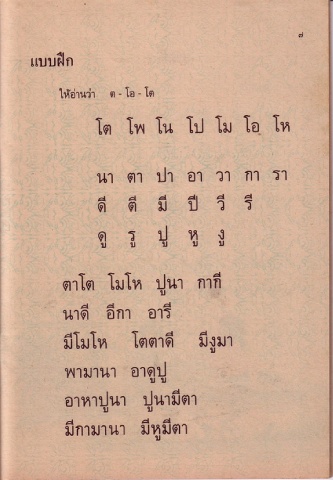 ๗
แบบฝึก
ให้อ่านว่า ต - โอ - โต
โต โพ โน โป โม โอ โห
นา ตา ปา อา วา กา รา
ดี ตี มี ปี วี รี
ดู รู ปู หู งู
ตาโต โมโห ปูนา กากี
นาดี อีกา อารี
มีโมโห โตตาดี มีงูมา
พามานา อาดูปู
อาหาปูนา ปูนามีตา
มีกามานา มีหูมีตา